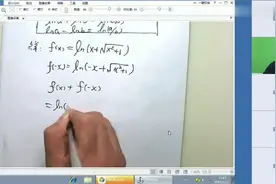 lna - lnb = ln(a/b)
解: f(x) = ln(x+√x²+1)
f(-x) = ln(-x+√x²+1)
f(x) + f(-x)
= ln(